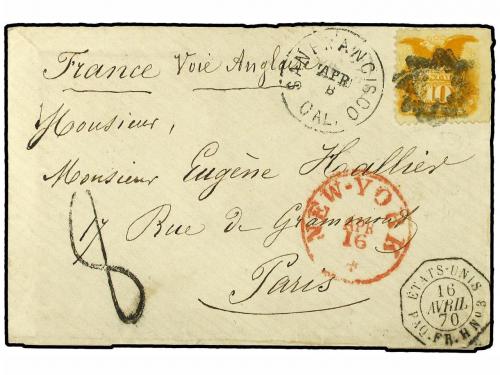 France Voie Anglaise
SAN FRANCISCO
APR
8
CAL.
10
Monsieur,
Monsieur Eugène Hallier
17 Rue de Grammont
Paris
8
NEW-YORK
APR
16
ETATS-UNIS
16
AVRIL
70
PAQ. FR. H No 3